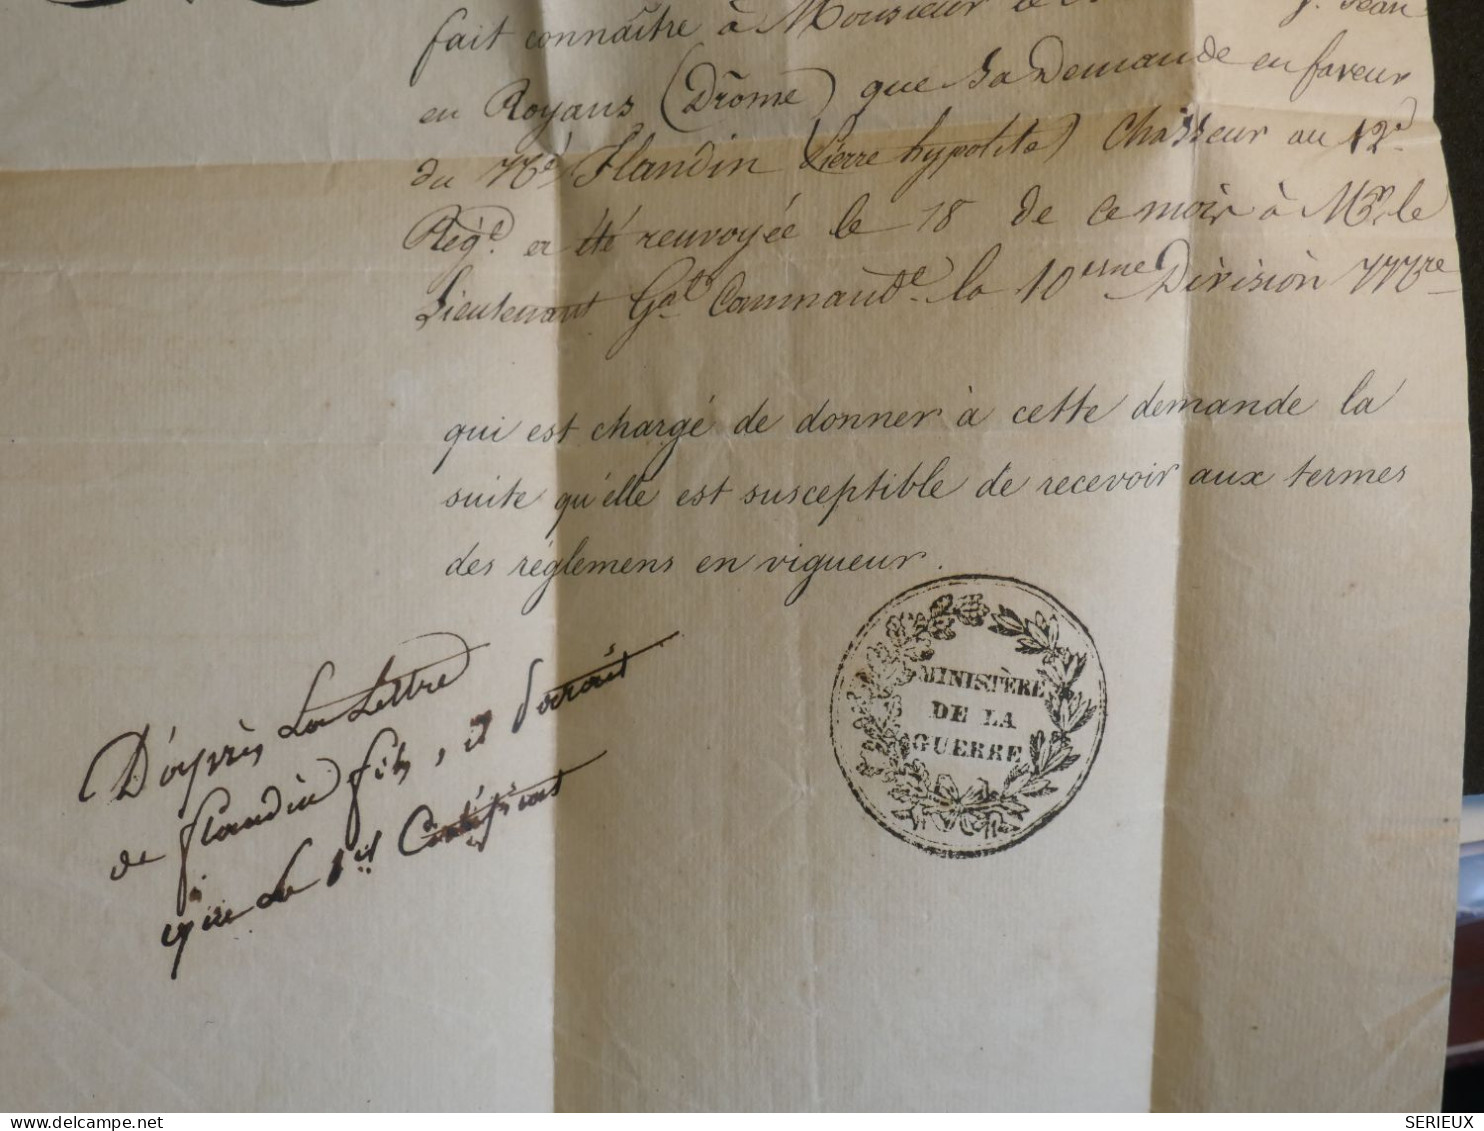 fait connaître à Monsieur le J. Jean
en Royans (Drôme) que sa Demande en faveur
du Né Flandin (Pierre hypolite) Chasseur au 12e
Régt. a été renvoyée le 18 de ce mois à Mr. le
Lieutenant Gal Commandt. la 10eme Division Mre
qui est chargé de donner à cette demande la
suite qu'elle est susceptible de recevoir aux termes
des réglemens en vigueur.
MINISTÈRE
DE LA
GUERRE
D'après La Lettre
de flandin fils, il
que Le
SERIEUX